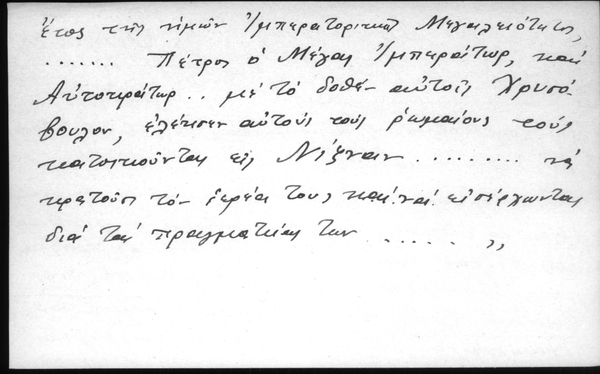 ἔτος τῆς ἡμῶν Ἰμπερατορικῆς Μεγαλειότητος,
....... Πέτρος ὁ Μέγας Ἰμπεράτωρ, καὶ
Αὐτοκράτωρ .. μὲ τὸ δοθὲν αὐτοῖς Χρυσό-
βουλον, ἐλέησεν αὐτοὺς τοὺς ῥωμαίους τοὺς
κατοικοῦντας εἰς Νίζναν ......... νὰ
κρατοῦσι τὸν ἱερέα τους καὶ νὰ εἰσέρχωνται
διὰ τὰς πραγματείας των ..... ,,